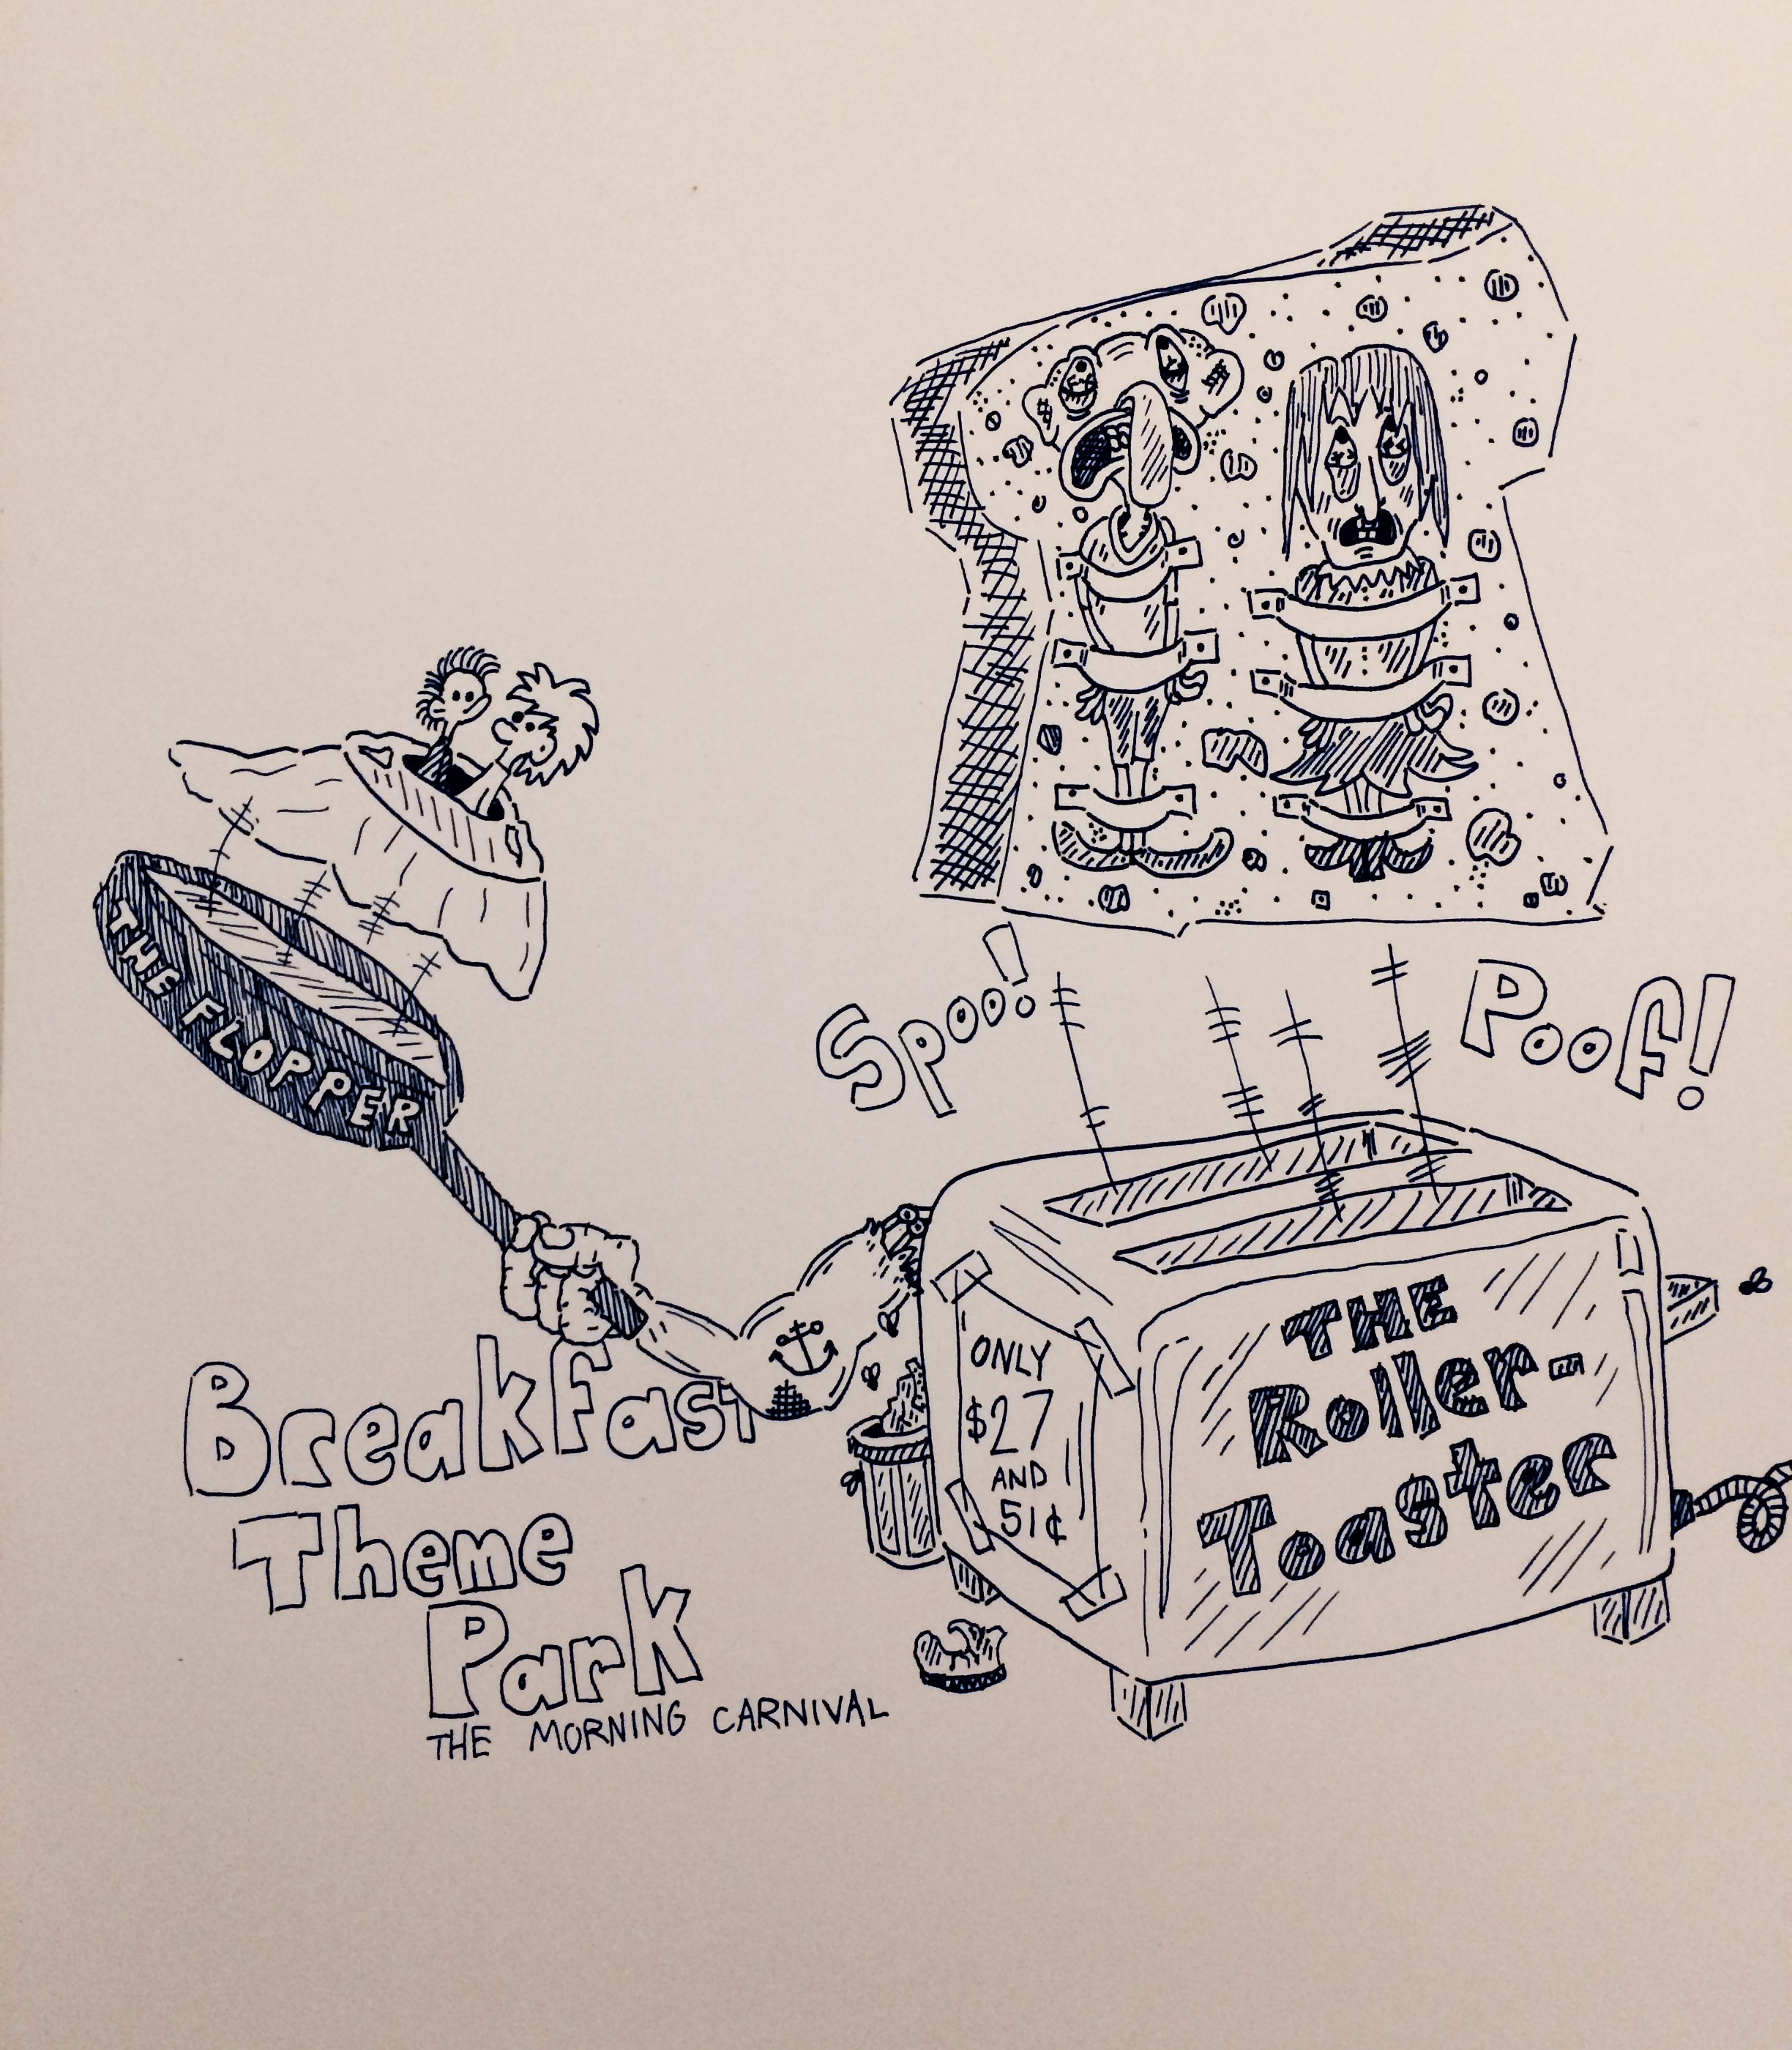 THE FLOPPER
Spoo!
Poof!
THE
Roller-
Toaster
ONLY
$27
AND
51¢
Breakfast
Theme
Park
THE MORNING CARNIVAL